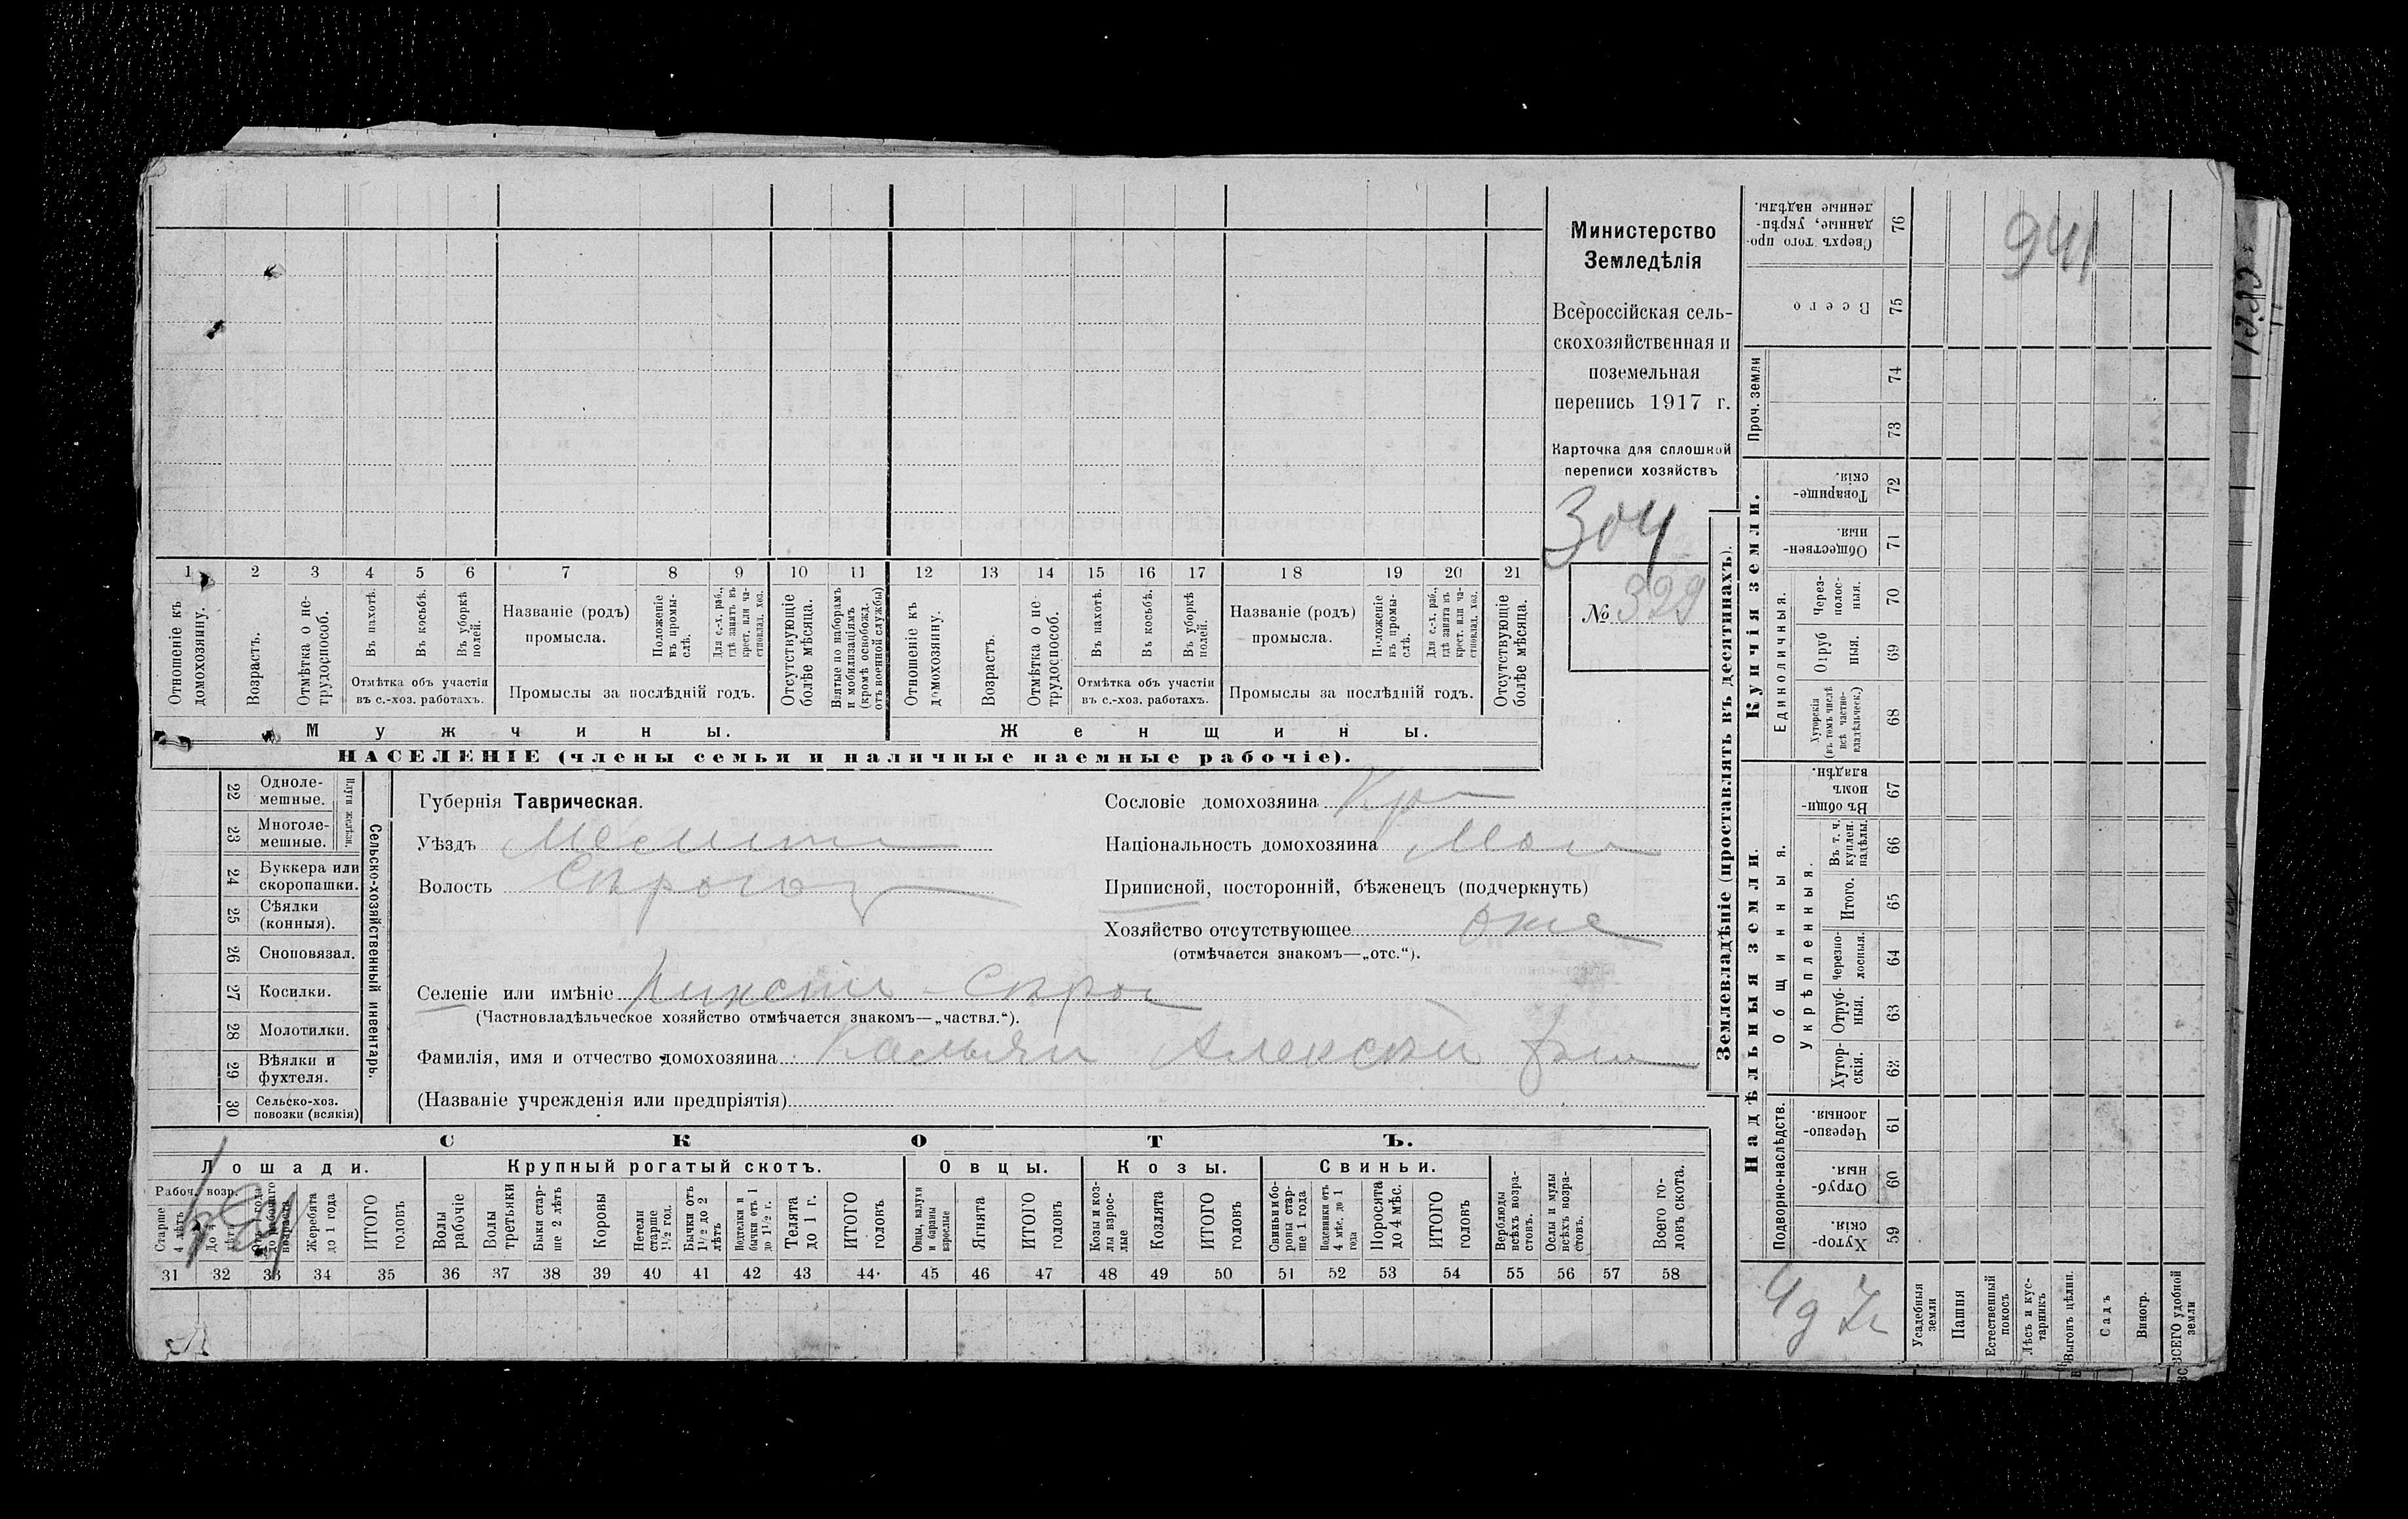 Министерство
Земледѣлія
Всероссійская сель-
скохозяйственная и
поземельная
перепись 1917 г.
Карточка для сплошной
переписи хозяйствъ
304
№ 329
1 2 3 4 5 6 7 8 9 10 11 12 13 14 15 16 17 18 19 20 21
Отношеніе къ домохозяину.
Возрастъ.
Отмѣтка о не-трудоспособ.
Въ пахотѣ.
Въ косьбѣ.
Въ уборкѣ полей.
Отмѣтка объ участіи
въ с.-хоз. работахъ.
Названіе (родъ)
промысла.
Положеніе въ промы-слѣ.
Для с.-х. раб., гдѣ занятъ въ крест. или ча-стновлад. хоз.
Промыслы за послѣдній годъ.
Отсутствующіе болѣе мѣсяца.
Взятые по наборамъ и мобилизаціямъ (кромѣ освобожд. отъ военной службы)
Отношеніе къ домохозяину.
Возрастъ.
Отмѣтка о не-трудоспособ.
Въ пахотѣ.
Въ косьбѣ.
Въ уборкѣ полей.
Отмѣтка объ участіи
въ с.-хоз. работахъ.
Названіе (родъ)
промысла.
Положеніе въ промы-слѣ.
Для с.-х. раб., гдѣ занята въ крест. или ча-стновлад. хоз.
Промыслы за послѣдній годъ.
Отсутствующіе болѣе мѣсяца.
Мужчины.
Женщины.
НАСЕЛЕНІЕ (члены семьи и наличные наемные рабочіе).
22 Одноле-мешные.
23 Многоле-мешные.
Плуги желѣзн.
24 Буккера или скоропашки.
25 Сѣялки (конныя).
26 Сноповязал.
27 Косилки.
28 Молотилки.
29 Вѣялки и фухтеля.
30 Сельско-хоз. повозки (всякія)
Сельско-хозяйственный инвентарь.
Губернія Таврическая.
Уѣздъ Мелит
Волость Сѣрогоз
Сословіе домохозяина Кр
Національность домохозяина Мал
Приписной, посторонній, бѣженец (подчеркнуть)
Хозяйство отсутствующее
(отмѣчается знакомъ—„отс.“).
Селеніе или имѣніе
(Частновладѣльческое хозяйство отмѣчается знакомъ—„частвл.“).
Фамилія, имя и отчество домохозяина Алексѣй
(Названіе учрежденія или предпріятія)
СКОТЪ.
Лошади.
Крупный рогатый скотъ.
Овцы.
Козы.
Свиньи.
Рабоч. возр.
Старше 4 лѣтъ
До 4 лѣтъ
Жеребята до 1 года
ИТОГО головъ
Волы рабочіе
Волы третьяки
Быки стар-ше 2 лѣтъ
Коровы
Нетели старше 1 1/2 год.
Бычки отъ 1 1/2 до 2 лѣтъ
Подтелки и бычки отъ 1 до 1 1/2 г.
Телята до 1 г.
ИТОГО головъ
Овцы, валухи и бараны взрослые
Ягнята
ИТОГО головъ
Козы и коз-лы взрос-лые
Козлята
ИТОГО головъ
Свиньи и бо-ровы стар-ше 1 года
Подсвинки отъ 4 мѣс. до 1 года
Поросята до 4 мѣс.
ИТОГО головъ
Верблюды всѣхъ возра-стовъ.
Ослы и мулы всѣхъ возра-стовъ.
Всего го-ловъ скота.
31 32 33 34 35 36 37 38 39 40 41 42 43 44 45 46 47 48 49 50 51 52 53 54 55 56 57 58
Землевладѣніе (проставлять въ десятинахъ).
941
Сверхъ того про-данные, укрѣп-ленные надѣлы. 76
Всего 75
Проч. земли
74
73
Купчія земли.
Товарище-скія. 72
Обществен-ныя. 71
Единоличныя.
Через-полос-ныя. 70
Отруб ныя. 69
Хуторскія (въ томъ числѣ всѣ частно-владѣльческ.) 68
Надѣльныя земли.
Общинныя.
Въ общин-номъ владѣн. 67
Укрѣпленныя.
Въ т. ч. куплен. надѣлы. 66
Итого. 65
Черезпо-лосныя. 64
Отруб-ныя. 63
Хутор-скія. 62
Подворно-наслѣдств.
Черезпо-лосныя. 61
Отруб-ныя. 60
Хутор-скія. 59
Усадебныя земли
Пашня
Естественный покосъ
Лѣсъ и кус-тарникъ
Выгонъ цѣлин.
Садъ
Виногр.
ВСЕГО удобной земли